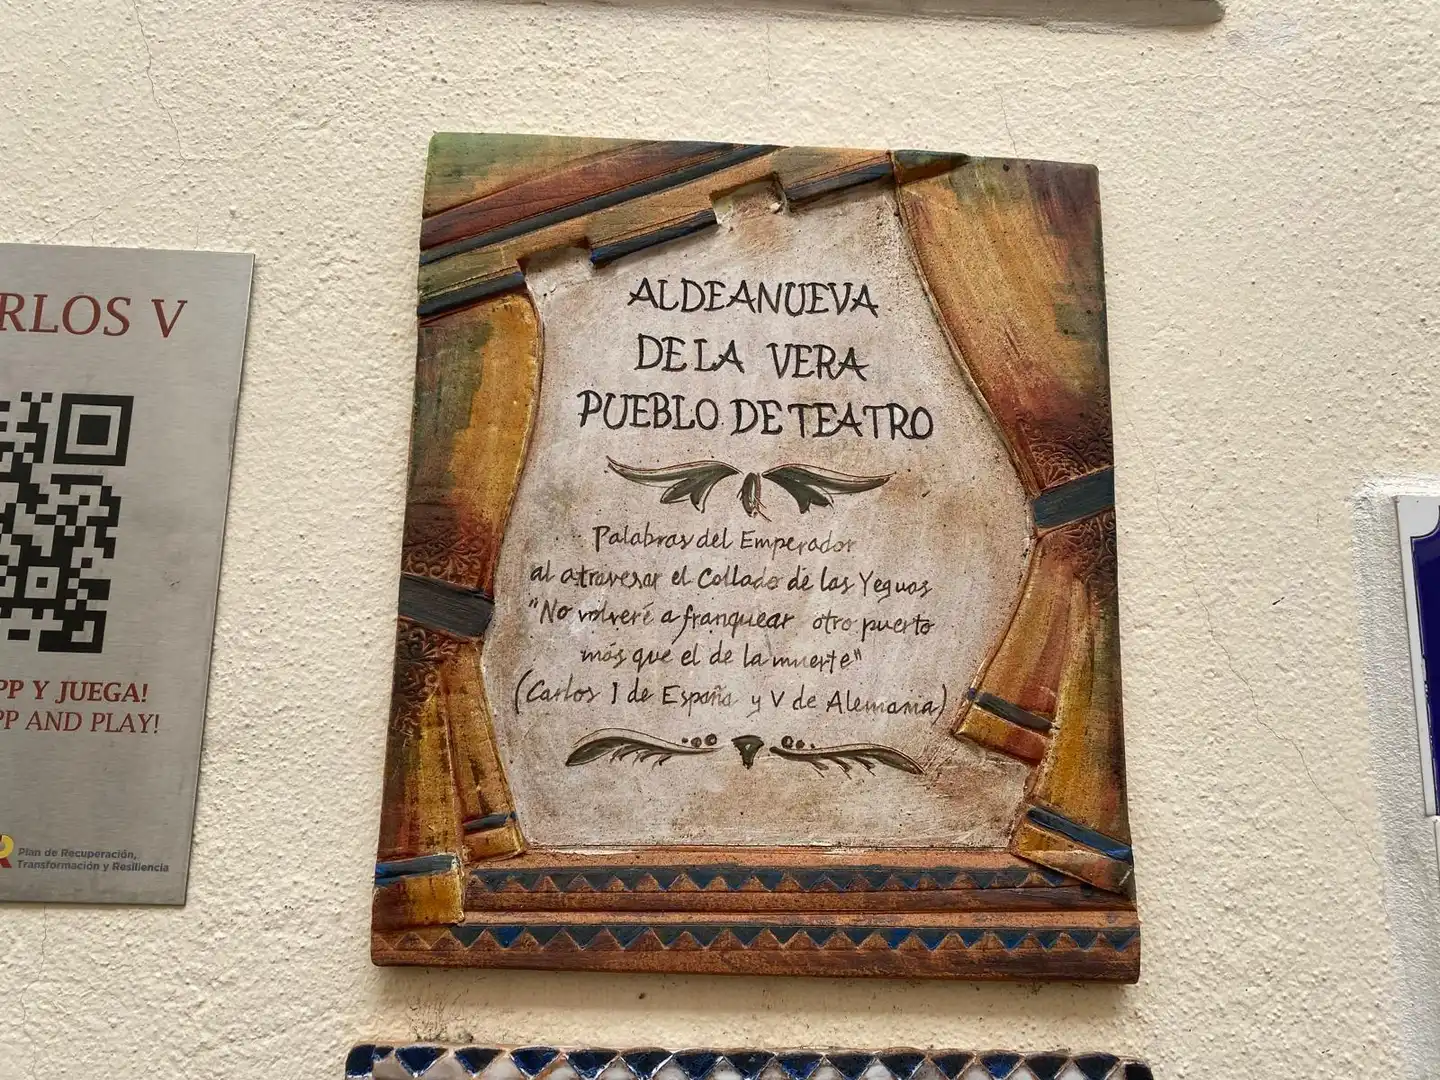 ALDEANUEVA
DE LA VERA
PUEBLO DE TEATRO
Palabras del Emperador
al atravesar el Collado de las Yeguas
"No volveré a franquear otro puerto
más que el de la muerte"
(Carlos I de España y V de Alemania)
RLOS V
PP Y JUEGA!
PP AND PLAY!
Plan de Recuperación,
Transformación y Resiliencia